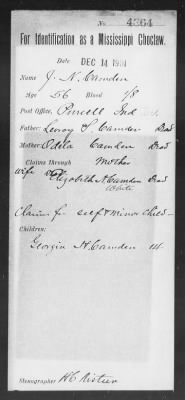 No. 4364
For Identification as a Mississippi Choctaw.
Date DEC 14 1901
Name J. N. Camden
Age 56 Blood 1/8
Post Office, Purcell Ind
Father: Leroy S. Camden Dead
Mother: Odela Camden Dead
Claims through Mother
wife Elizabeth A. Camden Dead
White
Claim for self & minor child -
Children:
Georgia H. Camden 14
Stenographer